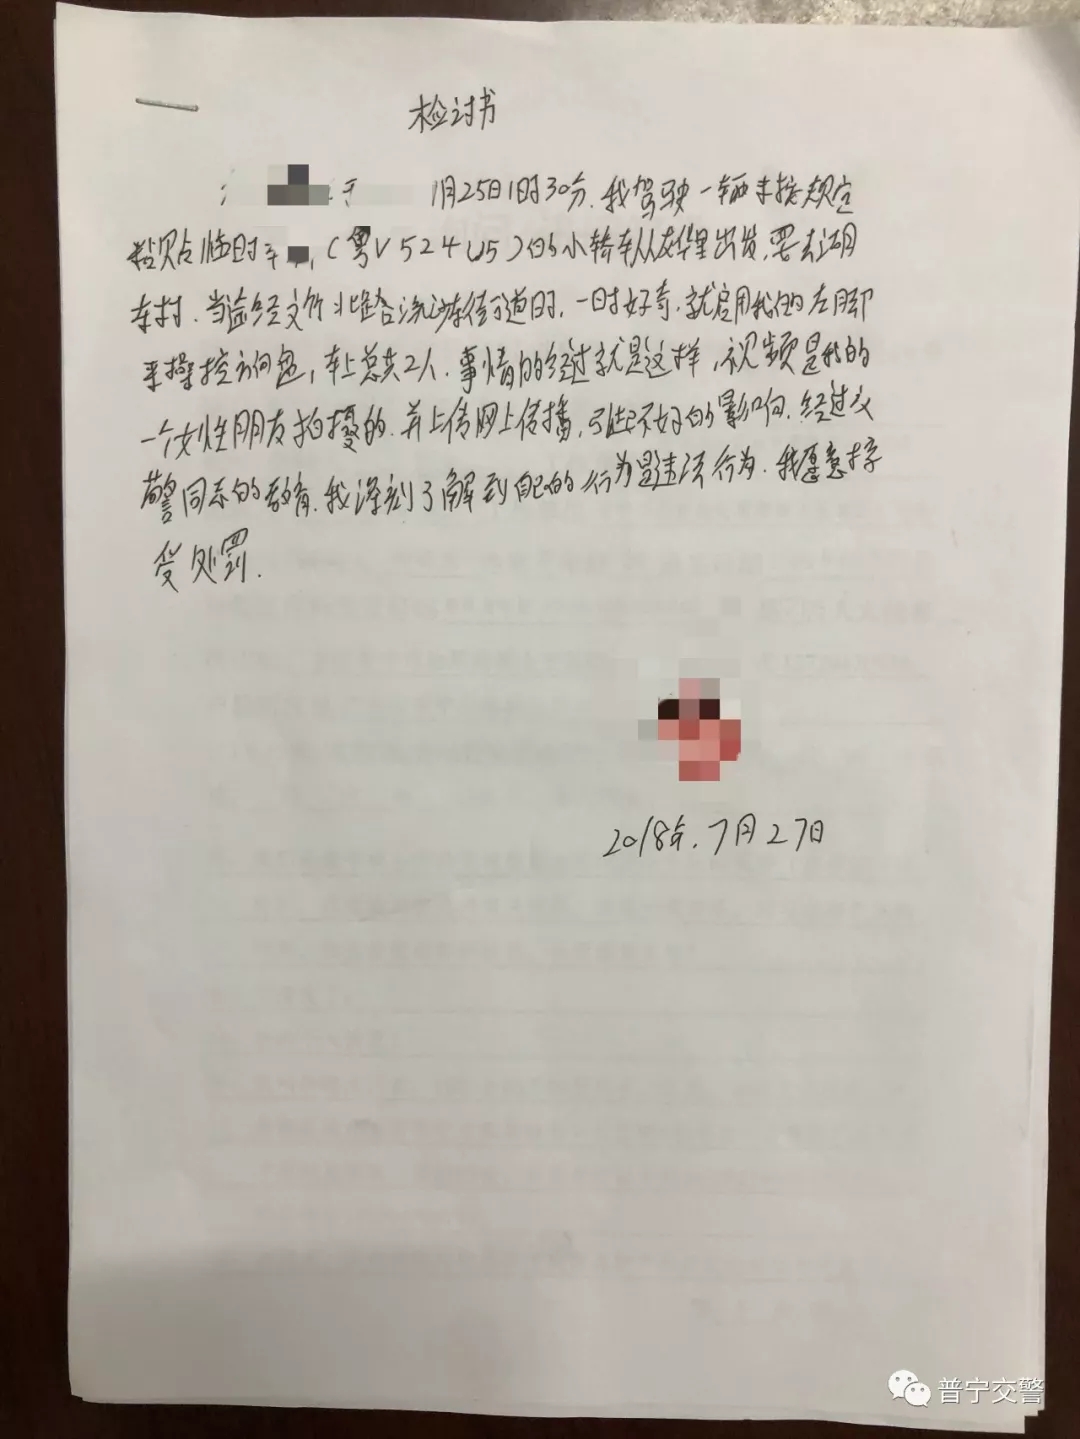 检讨书
于 月25日1时30分.我驾驶一辆未按规定
粘贴临时车 ,(粤V 524U5)的小轿车从 里出发,要去湖
东村.当途经文竹北路合 街道时,一时好奇.就启用我的左脚
来操控方向盘,车上总共2人.事情的经过就是这样,视频是我的
一个女性朋友拍摄的.并上传网上传播,引起不好的影响.经过交
警同志的教育.我深刻了解到自己的行为是违法行为.我愿意接
受处罚.
2018年.7月27日
普宁交警